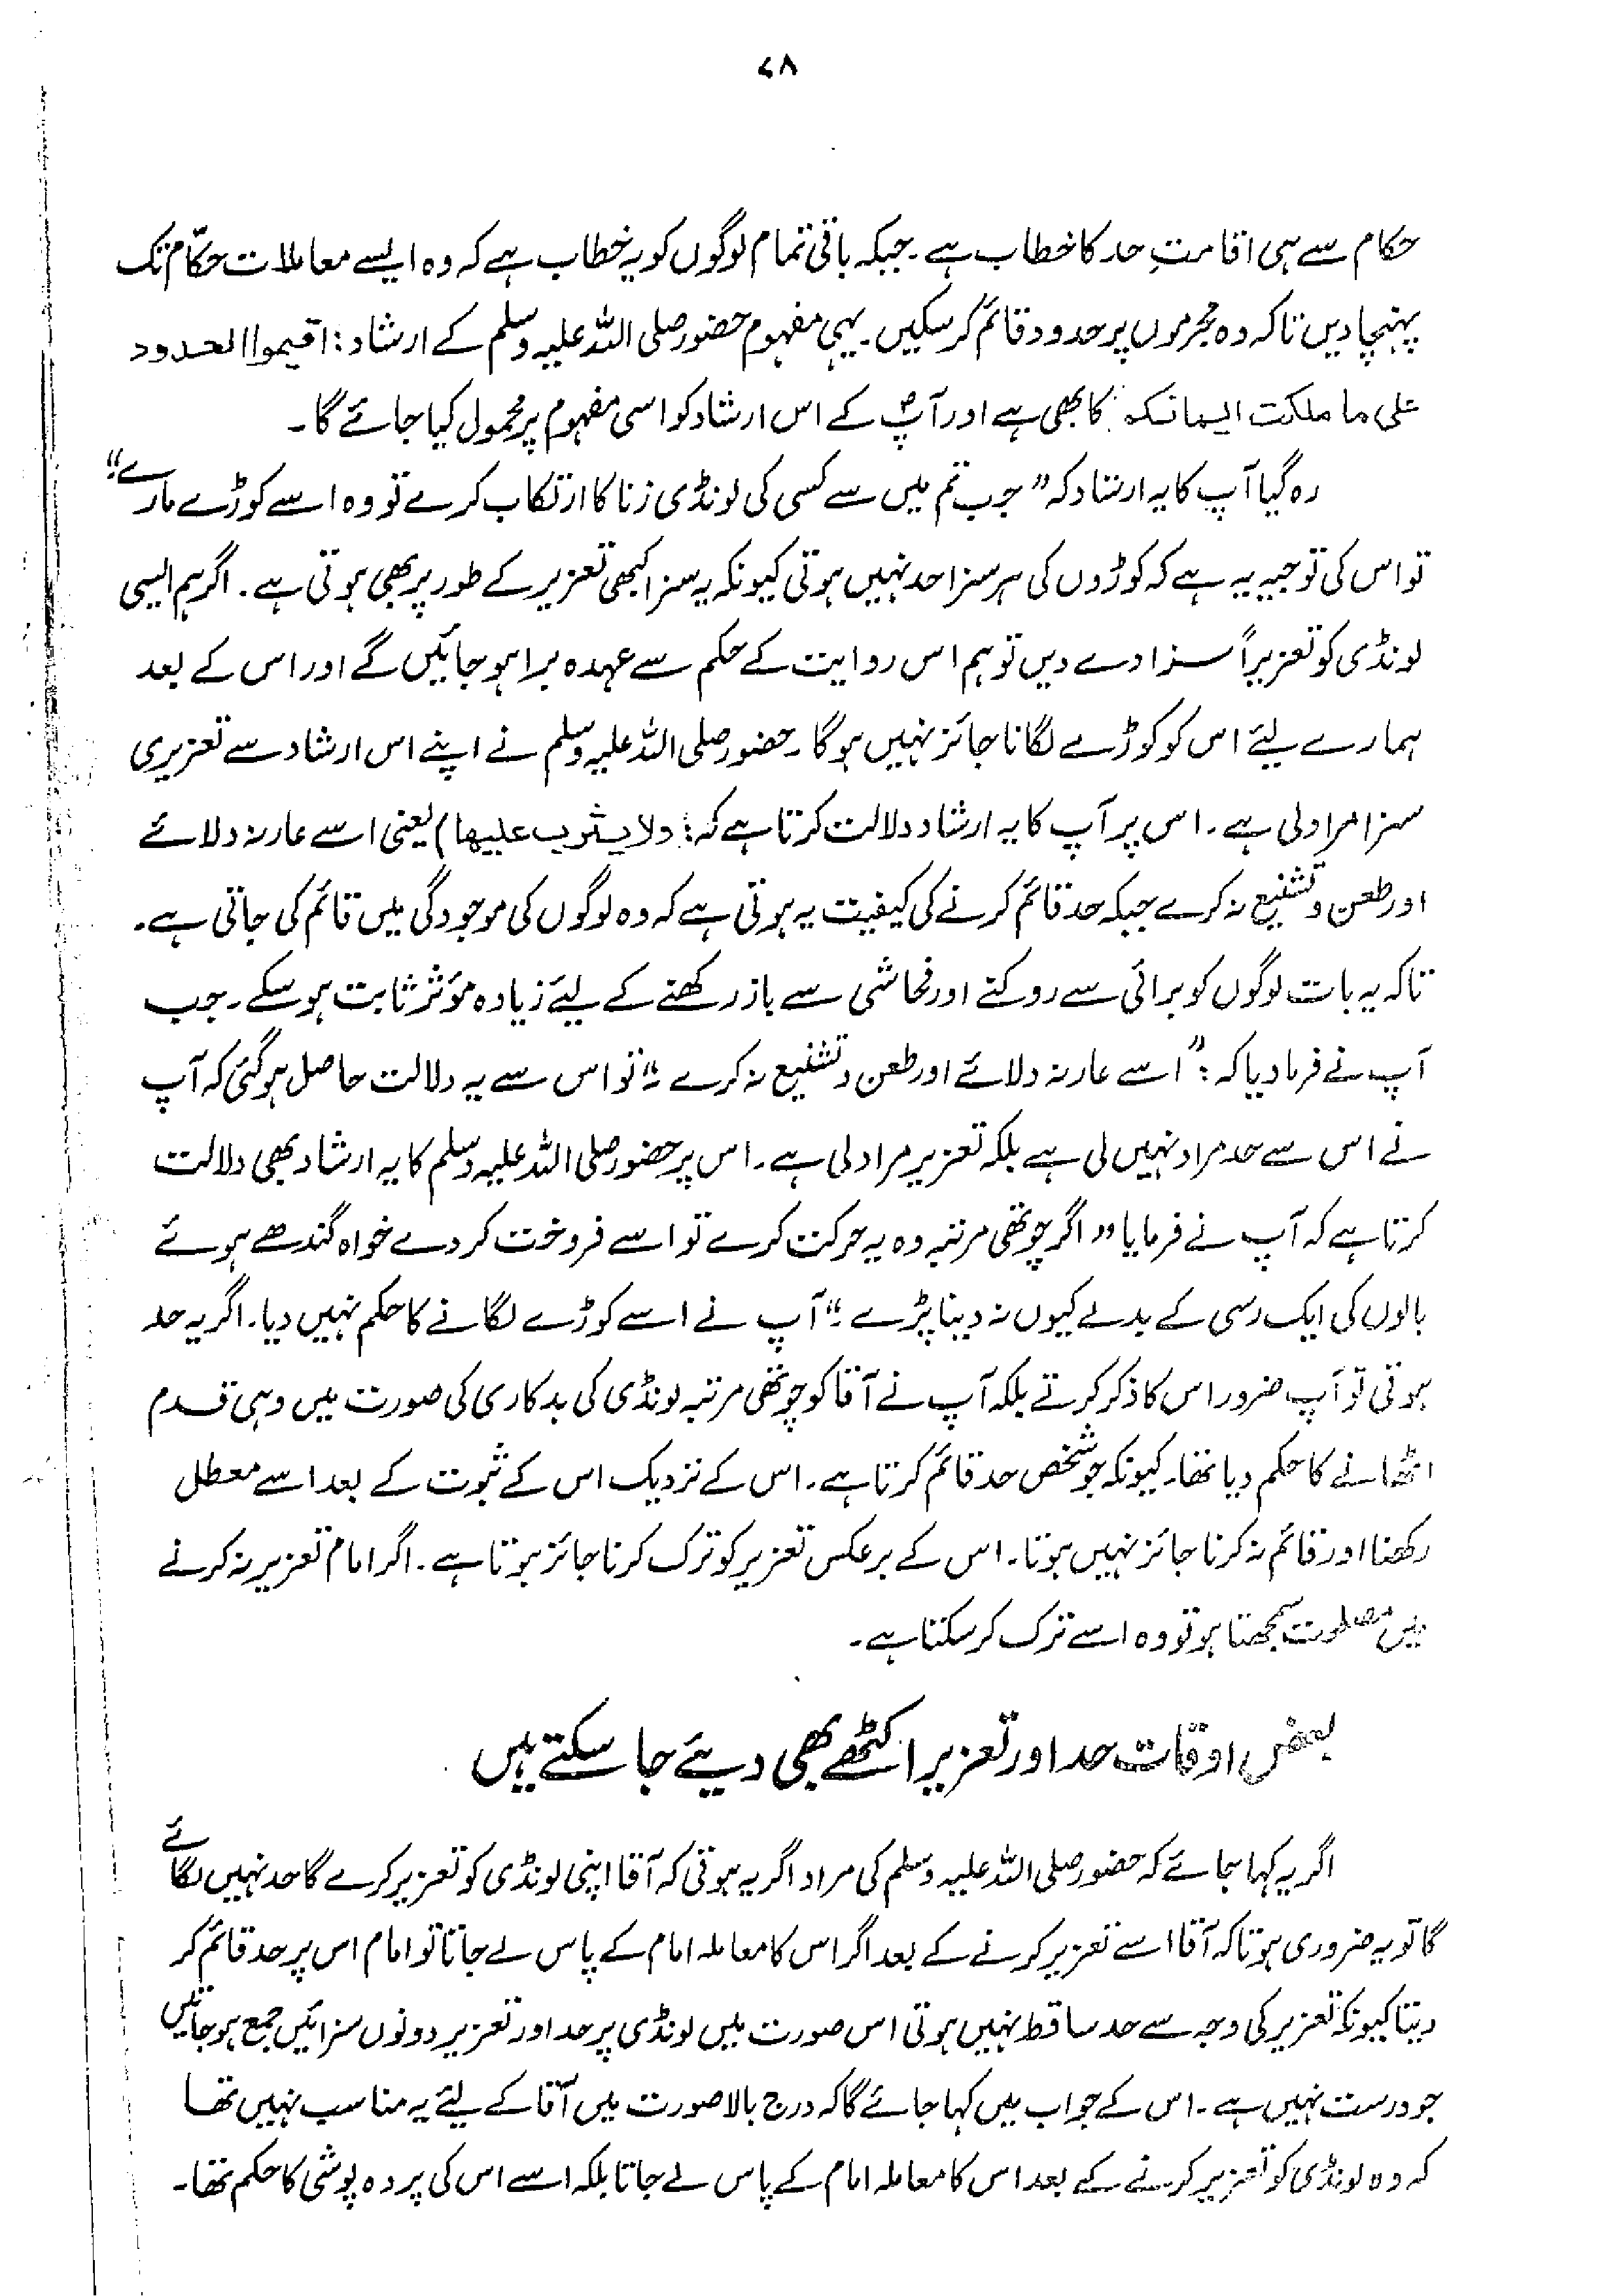 ۷۸
حکام سے ہی اقامتِ حد کا خطاب ہے۔ جبکہ باقی تمام لوگوں کو یہ خطاب ہے کہ وہ ایسے معاملات حکّام تک
پہنچا دیں تاکہ وہ مجرموں پر حدود قائم کر سکیں۔ یہی مفہوم حضور صلی اللہ علیہ وسلم کے ارشاد: اقیموا الحدود
علی ما ملکت ایمانکم کا بھی ہے اور آپؐ کے اس ارشاد کو اسی مفہوم پر محمول کیا جائے گا۔
رہ گیا آپ کا یہ ارشاد کہ "جب تم میں سے کسی کی لونڈی زنا کا ارتکاب کرے تو وہ اسے کوڑے مارے"
تو اس کی توجیہ یہ ہے کہ کوڑوں کی ہر سزا حد نہیں ہوتی کیونکہ یہ سزا کبھی تعزیر کے طور پر بھی ہوتی ہے۔ اگر ہم ایسی
لونڈی کو تعزیراً سزا دے دیں تو ہم اس روایت کے حکم سے عہدہ برا ہو جائیں گے اور اس کے بعد
ہمارے لیئے اس کو کوڑے لگانا جائز نہیں ہوگا۔ حضور صلی اللہ علیہ وسلم نے اپنے اس ارشاد سے تعزیری
سزا مراد لی ہے۔ اس پر آپ کا یہ ارشاد دلالت کرتا ہے کہ: (ولا یثرب علیھا) یعنی اسے عار نہ دلائے
اور طعن و تشنیع نہ کرے جبکہ حد قائم کرنے کی کیفیت یہ ہوتی ہے کہ وہ لوگوں کی موجودگی میں قائم کی جاتی ہے۔
تاکہ یہ بات لوگوں کو برائی سے روکنے اور فحاشی سے باز رکھنے کے لیئے زیادہ مؤثر ثابت ہو سکے۔ جب
آپ نے فرما دیا کہ: "اسے عار نہ دلائے اور طعن و تشنیع نہ کرے۔" تو اس سے یہ دلالت حاصل ہو گئی کہ آپ
نے اس سے حد مراد نہیں لی ہے بلکہ تعزیر مراد لی ہے۔ اس پر حضور صلی اللہ علیہ وسلم کا یہ ارشاد بھی دلالت
کرتا ہے کہ آپ نے فرمایا "اگر چوتھی مرتبہ وہ یہ حرکت کرے تو اسے فروخت کر دے خواہ گندھے ہوئے
بالوں کی ایک رسی کے بدلے کیوں نہ دینا پڑے۔" آپ نے اسے کوڑے لگانے کا حکم نہیں دیا۔ اگر یہ حد
ہوتی تو آپ ضرور اس کا ذکر کرتے بلکہ آپ نے آقا کو چوتھی مرتبہ لونڈی کی بدکاری کی صورت میں وہی قدم
اٹھانے کا حکم دیا تھا۔ کیونکہ جو شخص حد قائم کرتا ہے۔ اس کے نزدیک اس کے ثبوت کے بعد اسے معطل
رکھنا اور قائم نہ کرنا جائز نہیں ہوتا۔ اس کے برعکس تعزیر کو ترک کرنا جائز ہوتا ہے۔ اگر امام تعزیر نہ کرنے
میں مصلحت سمجھتا ہو تو وہ اسے ترک کر سکتا ہے۔
بعض اوقات حد اور تعزیر اکٹھے بھی دیئے جا سکتے ہیں
اگر یہ کہا جائے کہ حضور صلی اللہ علیہ وسلم کی مراد اگر یہ ہوتی کہ آقا اپنی لونڈی کو تعزیر کرے گا حد نہیں لگائے
گا تو یہ ضروری ہوتا کہ آقا اسے تعزیر کرنے کے بعد اگر اس کا معاملہ امام کے پاس لے جاتا تو امام اس پر حد قائم کر
دیتا کیونکہ تعزیر کی وجہ سے حد ساقط نہیں ہوتی اس صورت میں لونڈی پر حد اور تعزیر دونوں سزائیں جمع ہو جاتیں
جو درست نہیں ہے۔ اس کے جواب میں کہا جائے گا کہ درج بالا صورت میں آقا کے لیئے یہ مناسب نہیں تھا
کہ وہ لونڈی کو تعزیر کرنے کے بعد اس کا معاملہ امام کے پاس لے جاتا بلکہ اسے اس کی پردہ پوشی کا حکم تھا۔